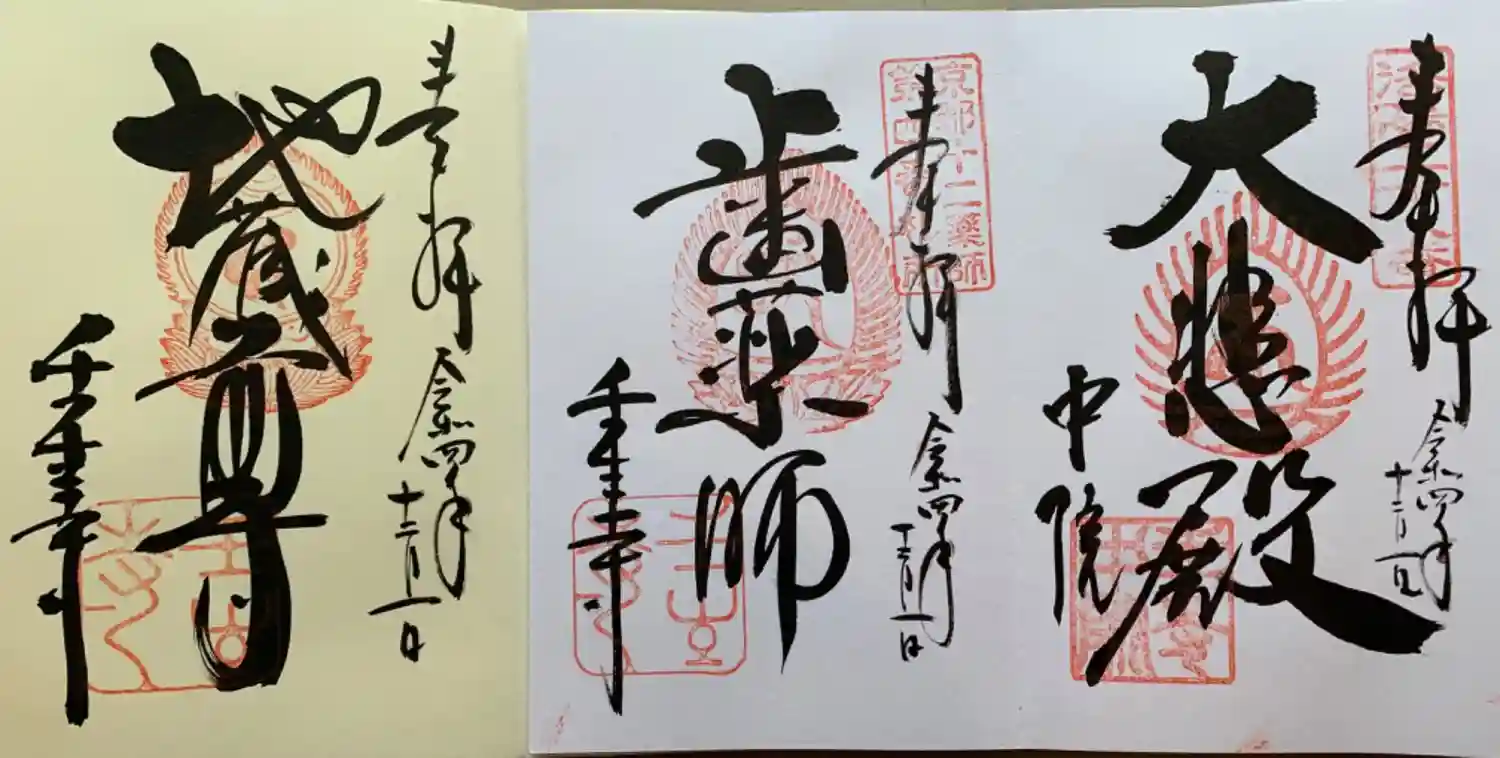 奉拝
令和四年
十二月一日
大悲殿
中院
京都十二薬師
第四番札所
奉拝
令和四年
十二月一日
歯薬師
壬生寺
奉拝
令和四年
十二月一日
地蔵尊
壬生寺